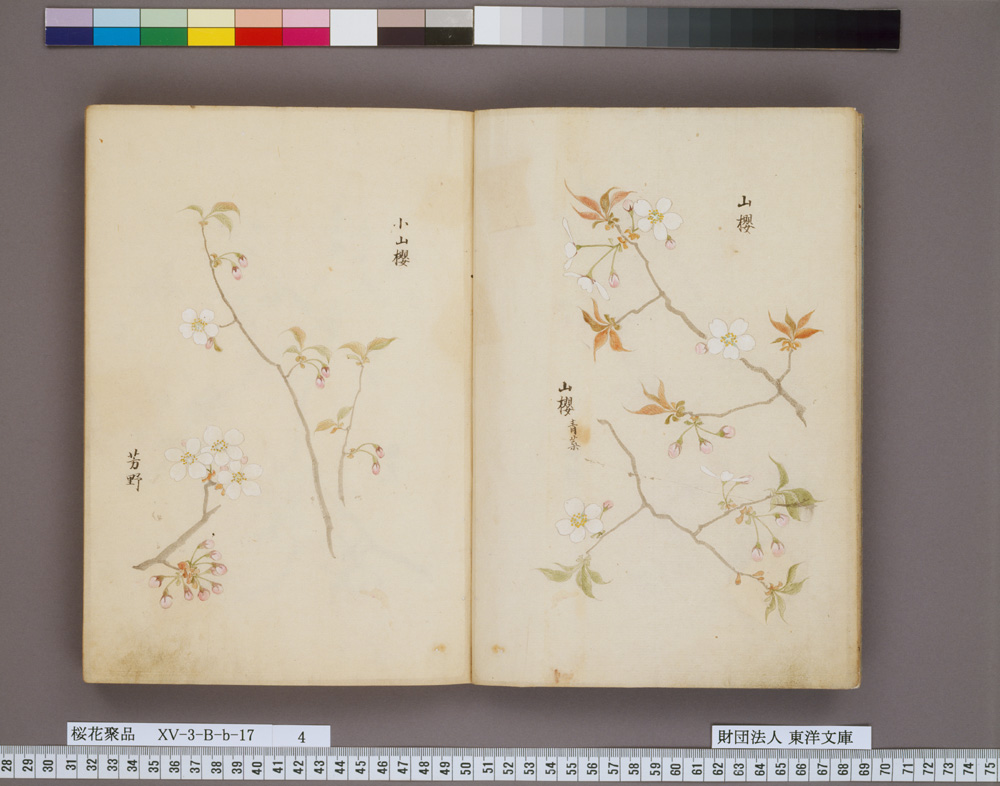 山櫻
山櫻 青葉
小山櫻
芳野
桜花聚品 XV-3-B-b-17 4
財団法人 東洋文庫
28 29 30 31 32 33 34 35 36 37 38 39 40 41 42 43 44 45 46 47 48 49 50 51 52 53 54 55 56 57 58 59 60 61 62 63 64 65 66 67 68 69 70 71 72 73 74 75